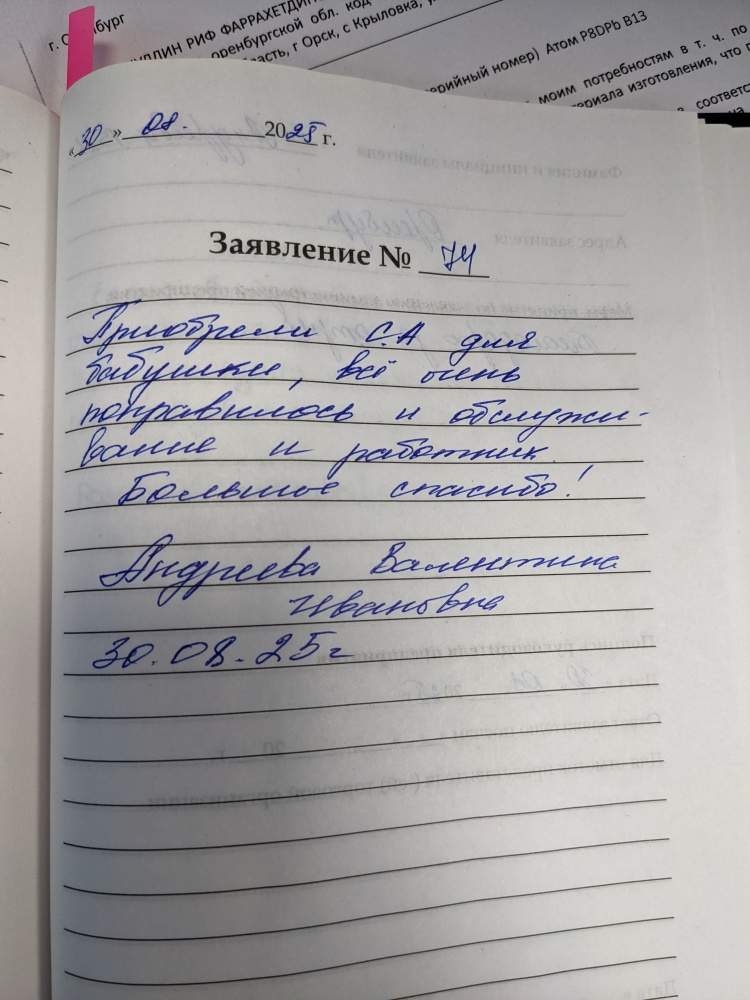 г. О нбург
УЛЛИН РИФ ФАРРАХЕТДИН
оренбургской обл. код
бласть, г Орск, с Крыловка, у
ерийный номер) Атом P8DPb B13
моим потребностям в т. ч. по
териала изготовления, что п
соответс
«30» 08. 2025 г.
Заявление № 74
Приобрели С.А для
бабушки, всё очень
понравилось и обслужи-
вание и работник.
Большое спасибо!
Андреева Валентина
Ивановна
30.08.25г